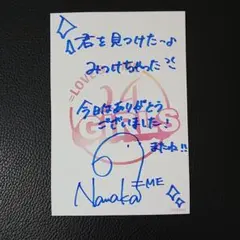 君を見つけた〜♪
みつけちゃった!!
=LOVE
今日はありがとう
ございました♪
GIRLS
またね!!
Nanaka
=ME